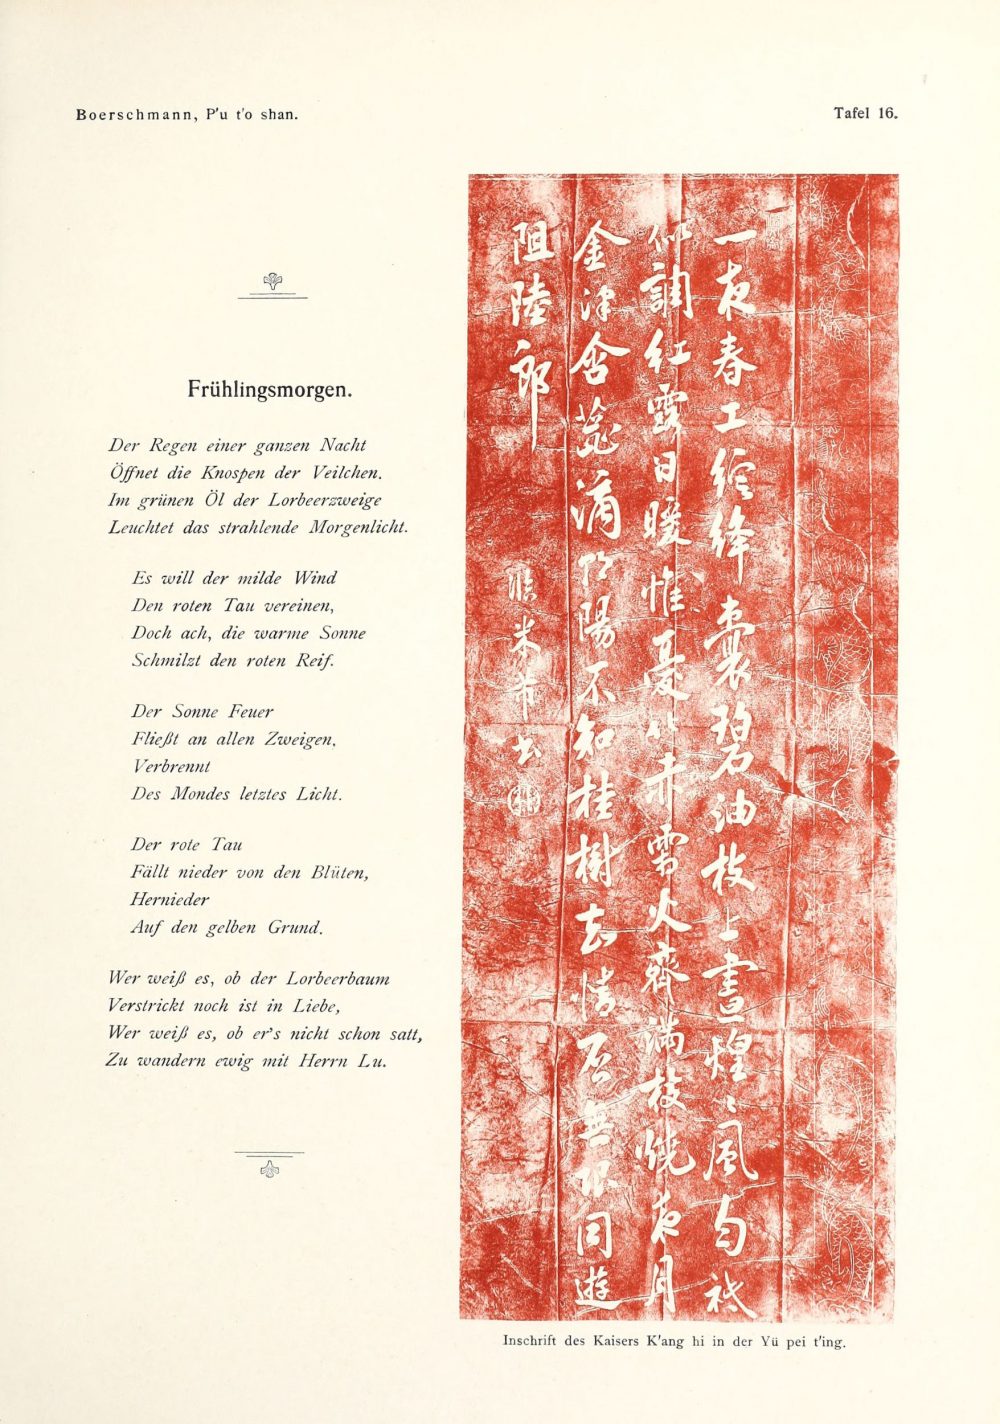 Boerschmann, P'u t'o shan.
Tafel 16.
Frühlingsmorgen.
Der Regen einer ganzen Nacht
Öffnet die Knospen der Veilchen.
Im grünen Öl der Lorbeerzweige
Leuchtet das strahlende Morgenlicht.
Es will der milde Wind
Den roten Tau vereinen,
Doch ach, die warme Sonne
Schmilzt den roten Reif.
Der Sonne Feuer
Fließt an allen Zweigen,
Verbrennt
Des Mondes letztes Licht.
Der rote Tau
Fällt nieder von den Blüten,
Hernieder
Auf den gelben Grund.
Wer weiß es, ob der Lorbeerbaum
Verstrickt noch ist in Liebe,
Wer weiß es, ob er's nicht schon satt,
Zu wandern ewig mit Herrn Lu.
一夜春工綻絳囊碧油枝上晝煌〻風勻秪
似調紅露日暖惟憂化赤霜火齊滿枝燒夜月
金津含蕊滴朝陽不知桂樹知情否無限同遊
阻陸郎
臨米芾書
Inschrift des Kaisers K'ang hi in der Yü pei t'ing.